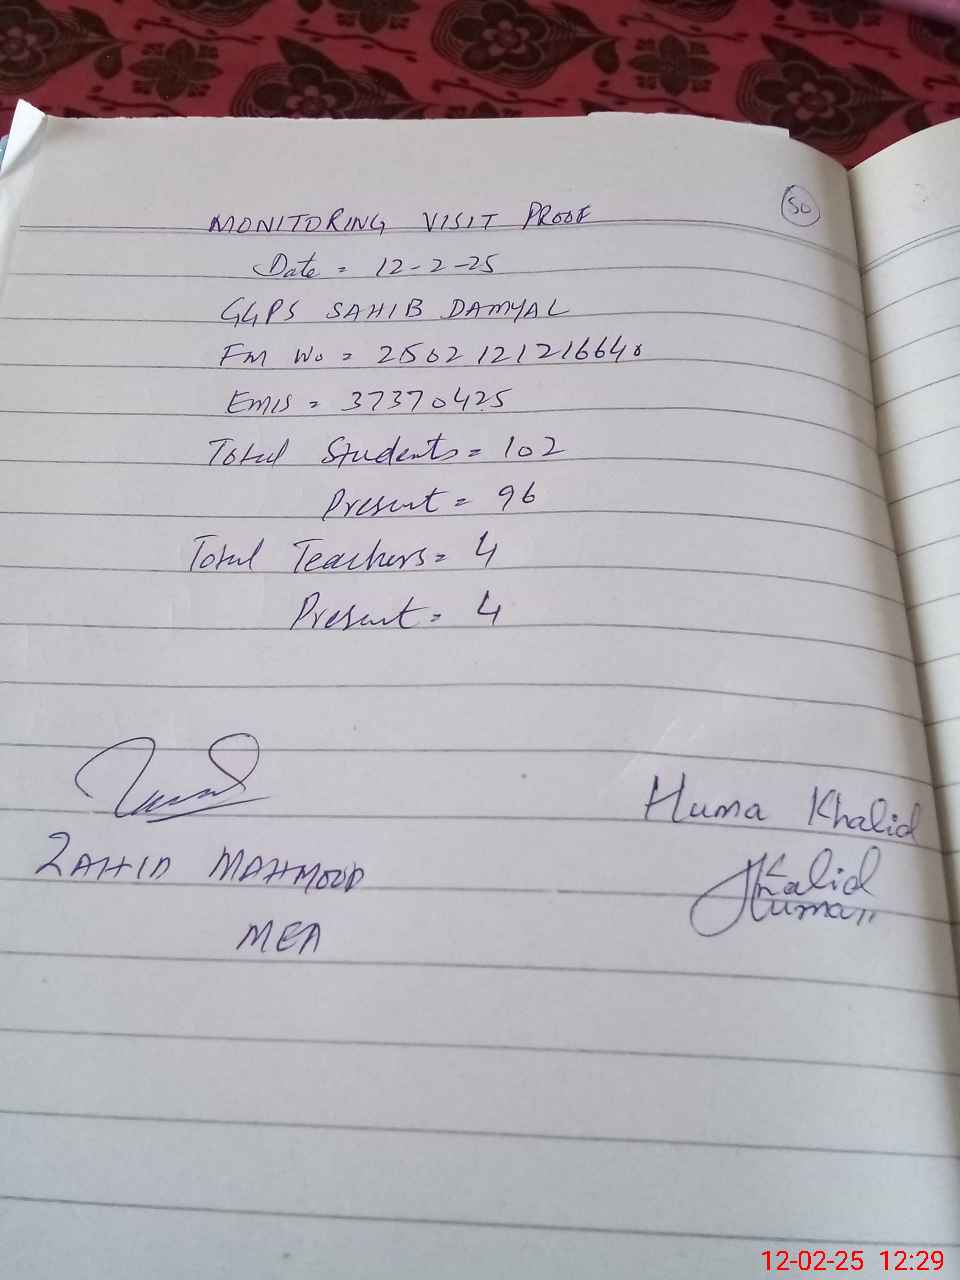 50
MONITORING VISIT PROOF
Date = 12-2-25
GGPS SAHIB DAMYAL
FM No = 2502121216640
EMIS = 37370425
Total Students = 102
Present = 96
Total Teachers = 4
Present = 4
Huma Khalid
ZAHID MAHMOOD
Khalid
Huma
MEA
12-02-25 12:29